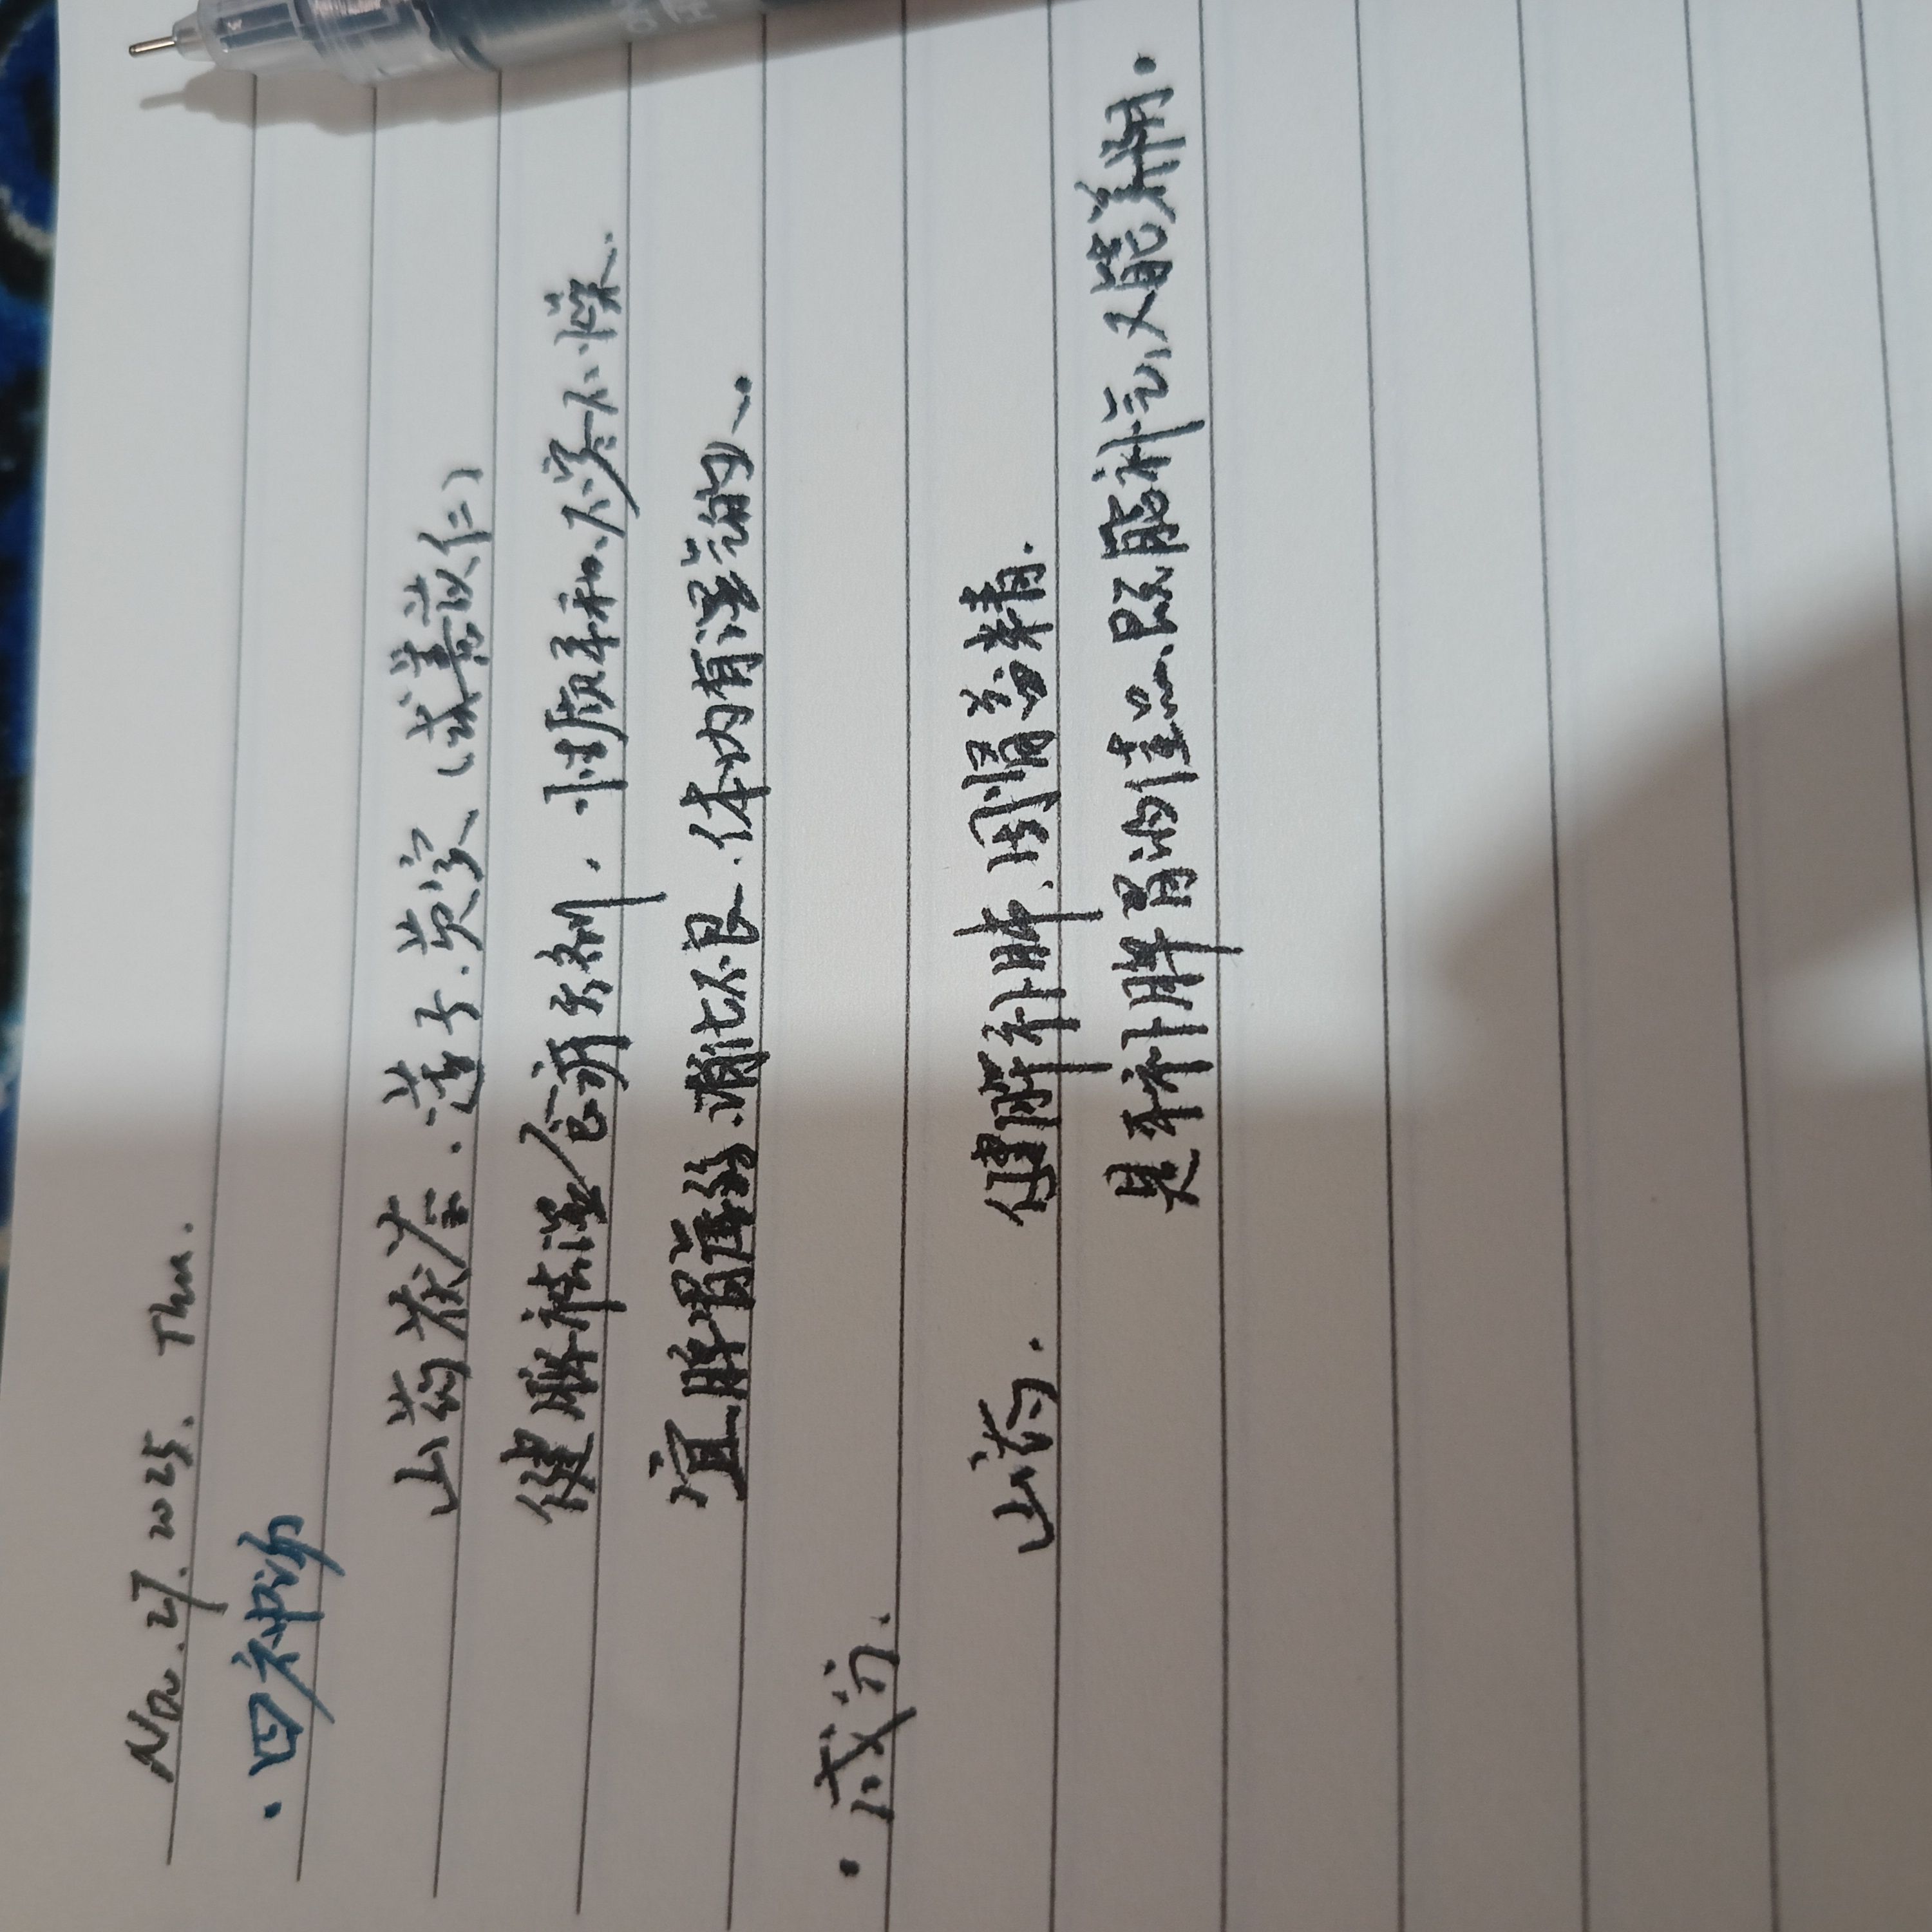 Nov. 27. 2025. Thu.
·四神汤
山药茯苓.莲子.芡实(或薏苡仁)
健脾祛湿食疗方剂.性质平和.不寒不燥.
宜脾胃虚弱.消化不良.体内有湿气的人.
·成分.
山药. 健脾补肺、固肾益精.
是平补脾胃的佳品.既能补气又能养阴.